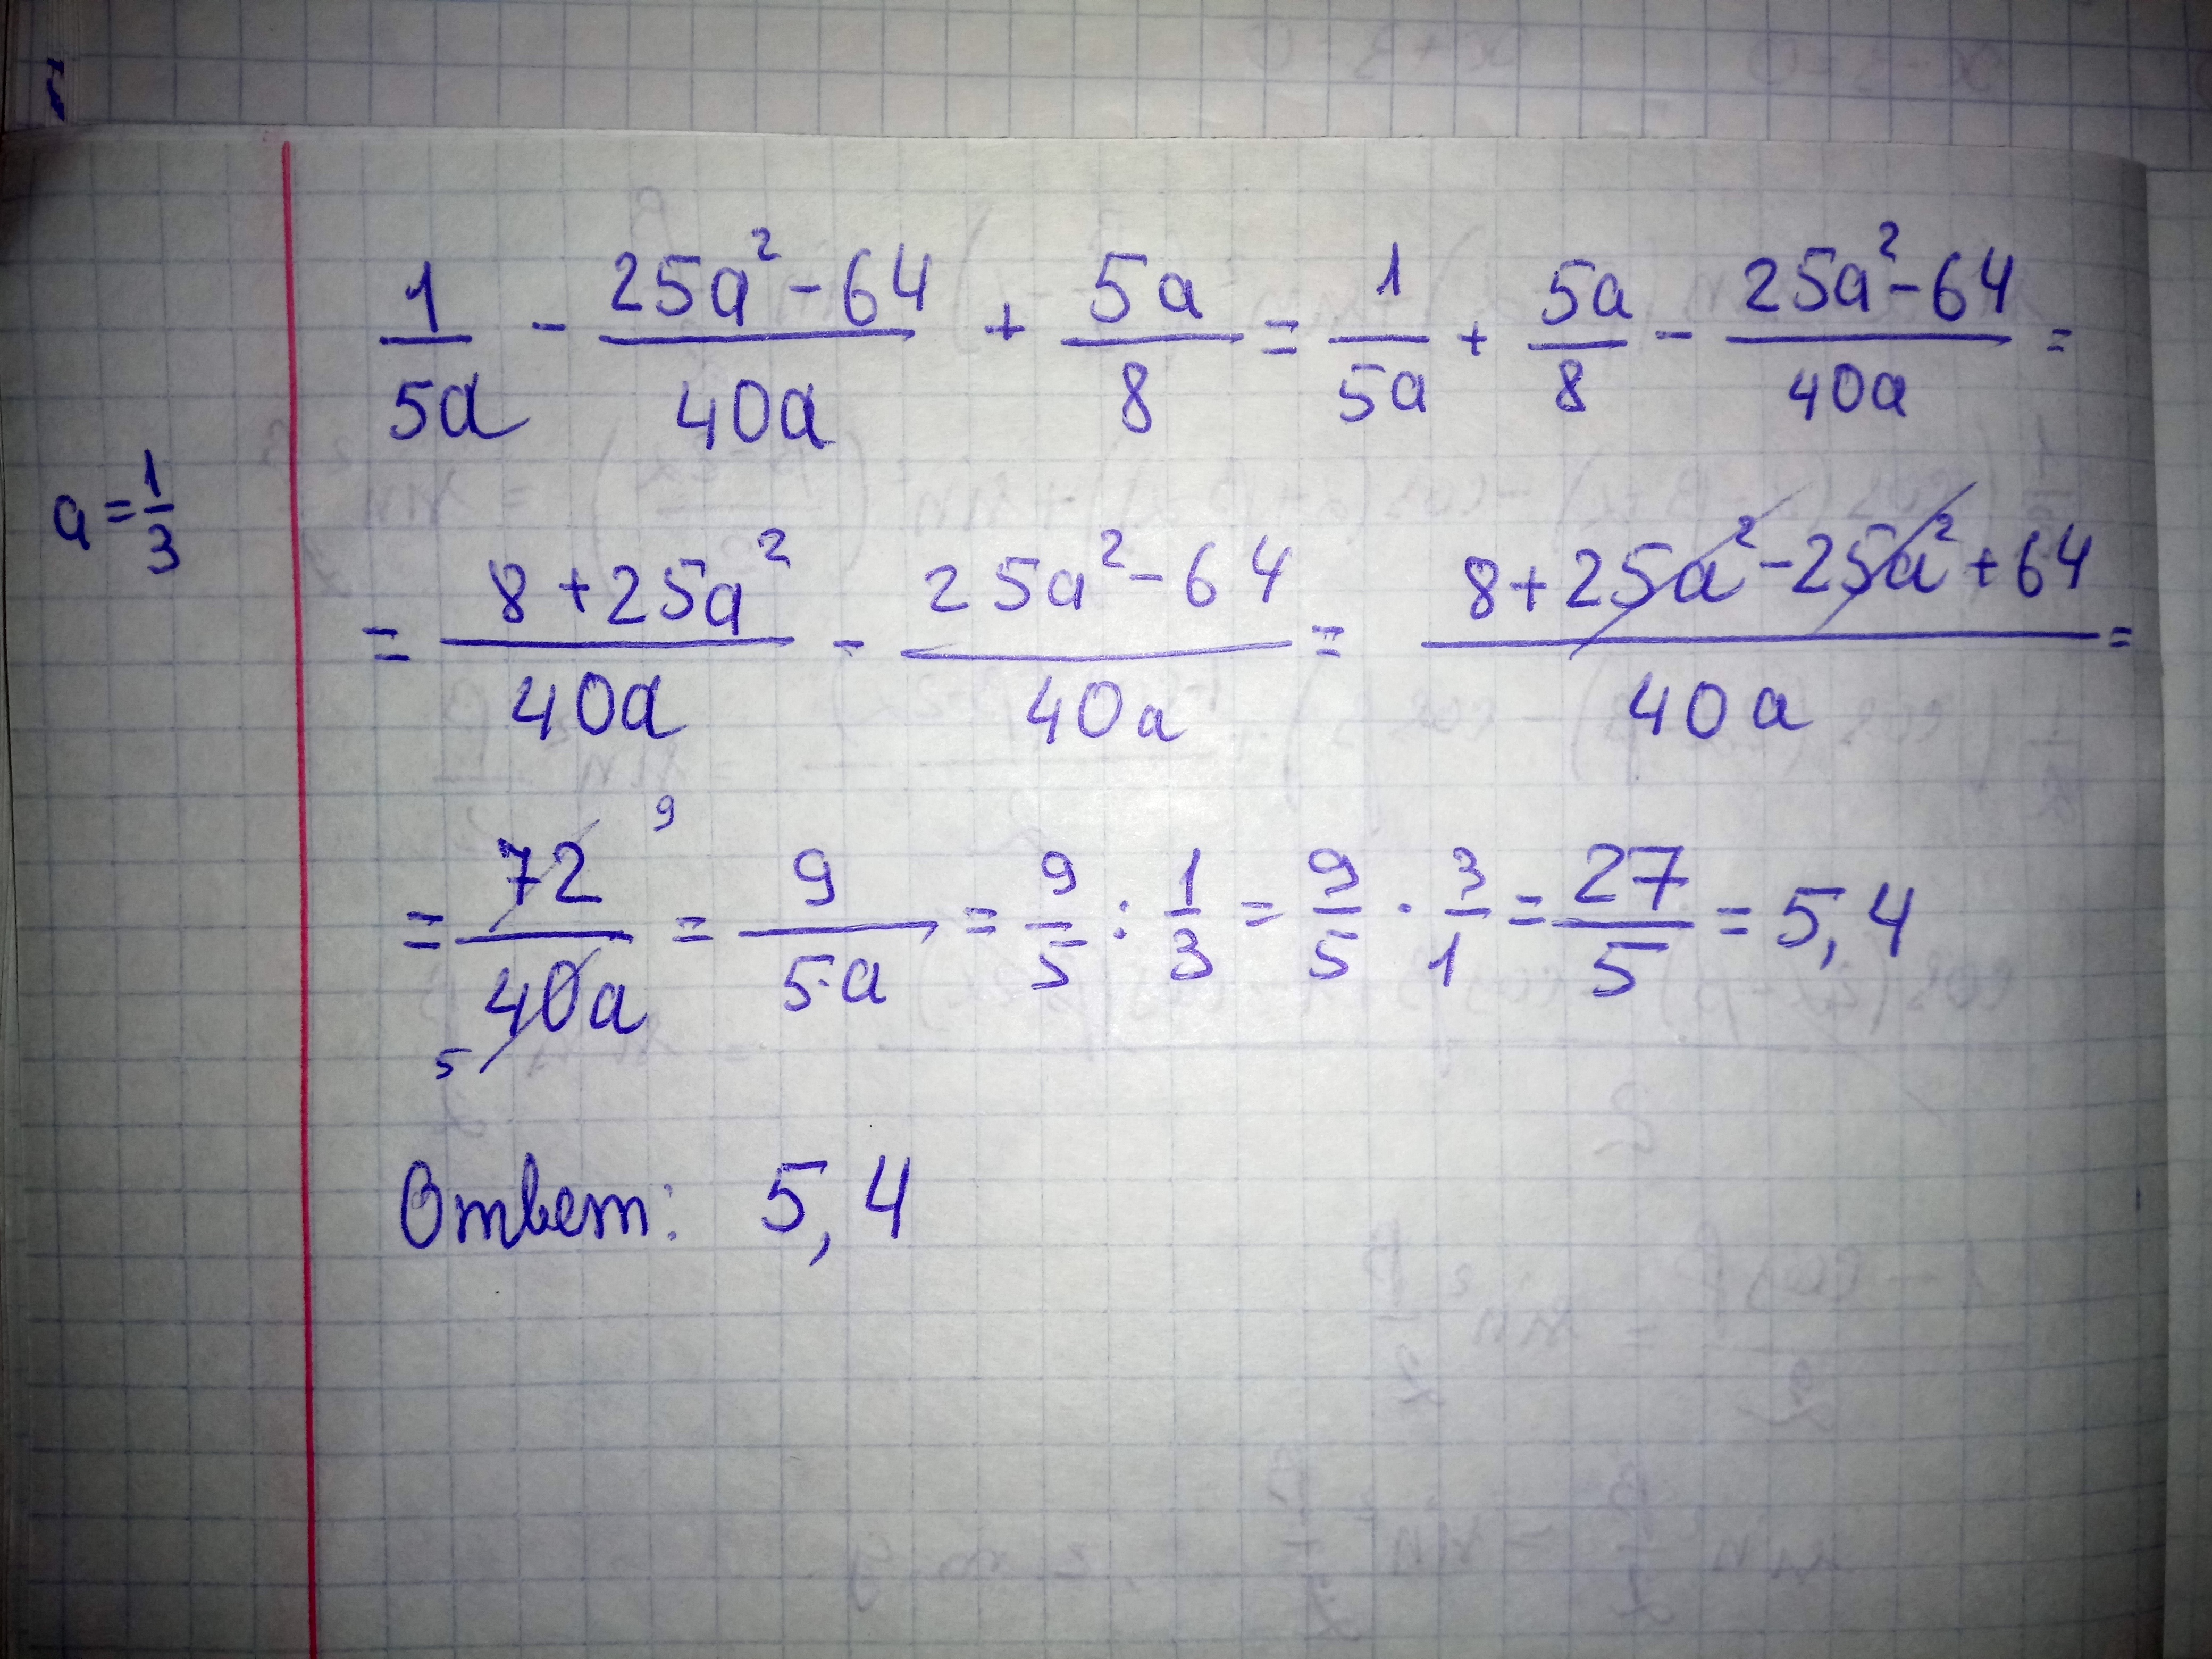 1/5a - (25a² - 64)/40a + 5a/8 = 1/5a + 5a/8 - (25a² - 64)/40a =
a = 1/3
= (8 + 25a²)/40a - (25a² - 64)/40a = (8 + 25a² - 25a² + 64)/40a =
= 72/40a 9 5 = 9/5·a = 9/5 : 1/3 = 9/5 · 3/1 = 27/5 = 5,4
Ответ: 5,4